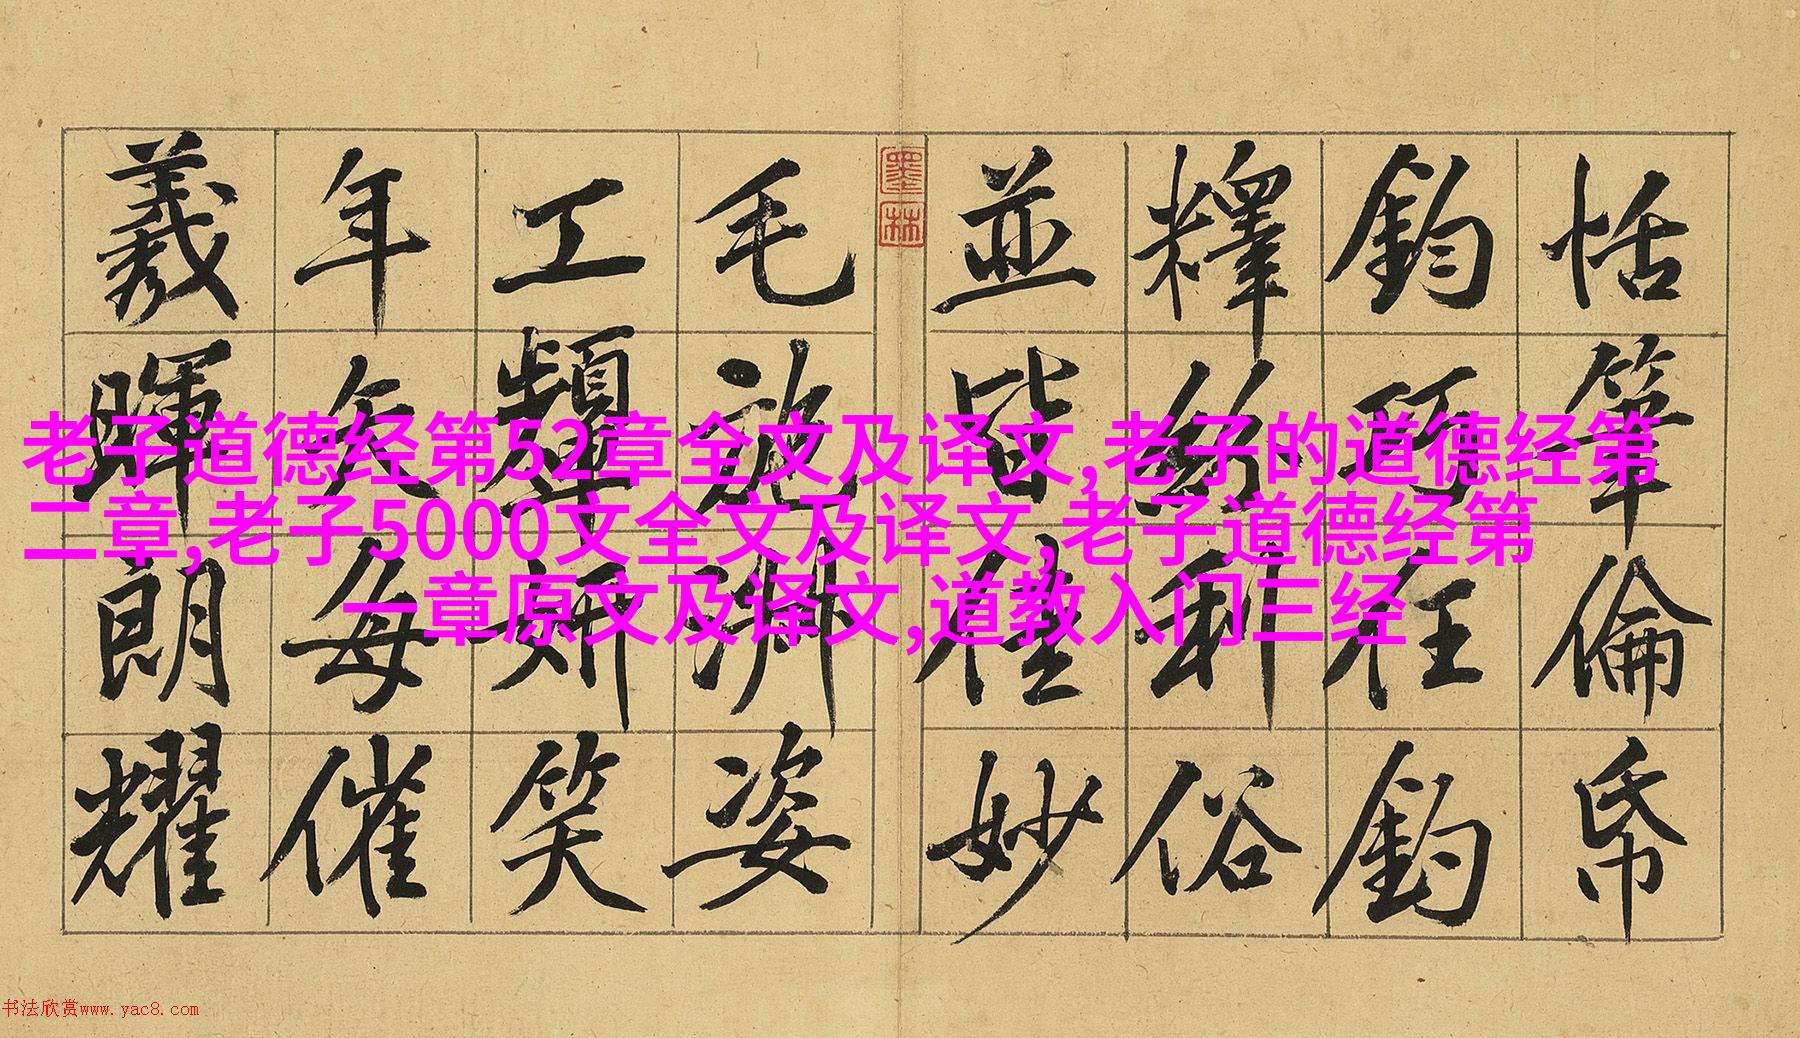 恬筆倫帋
鈞巧任釣
釋紛利俗
並皆佳妙
墨林
毛施淑姿
工顰妍笑
年矢每催
羲暉朗耀
老子道德经第52章全文及译文,老子的道德经第
二章,老子5000文全文及译文,老子道德经第
一章原文及译文,道教入门三经
书法欣赏www.yac8.com